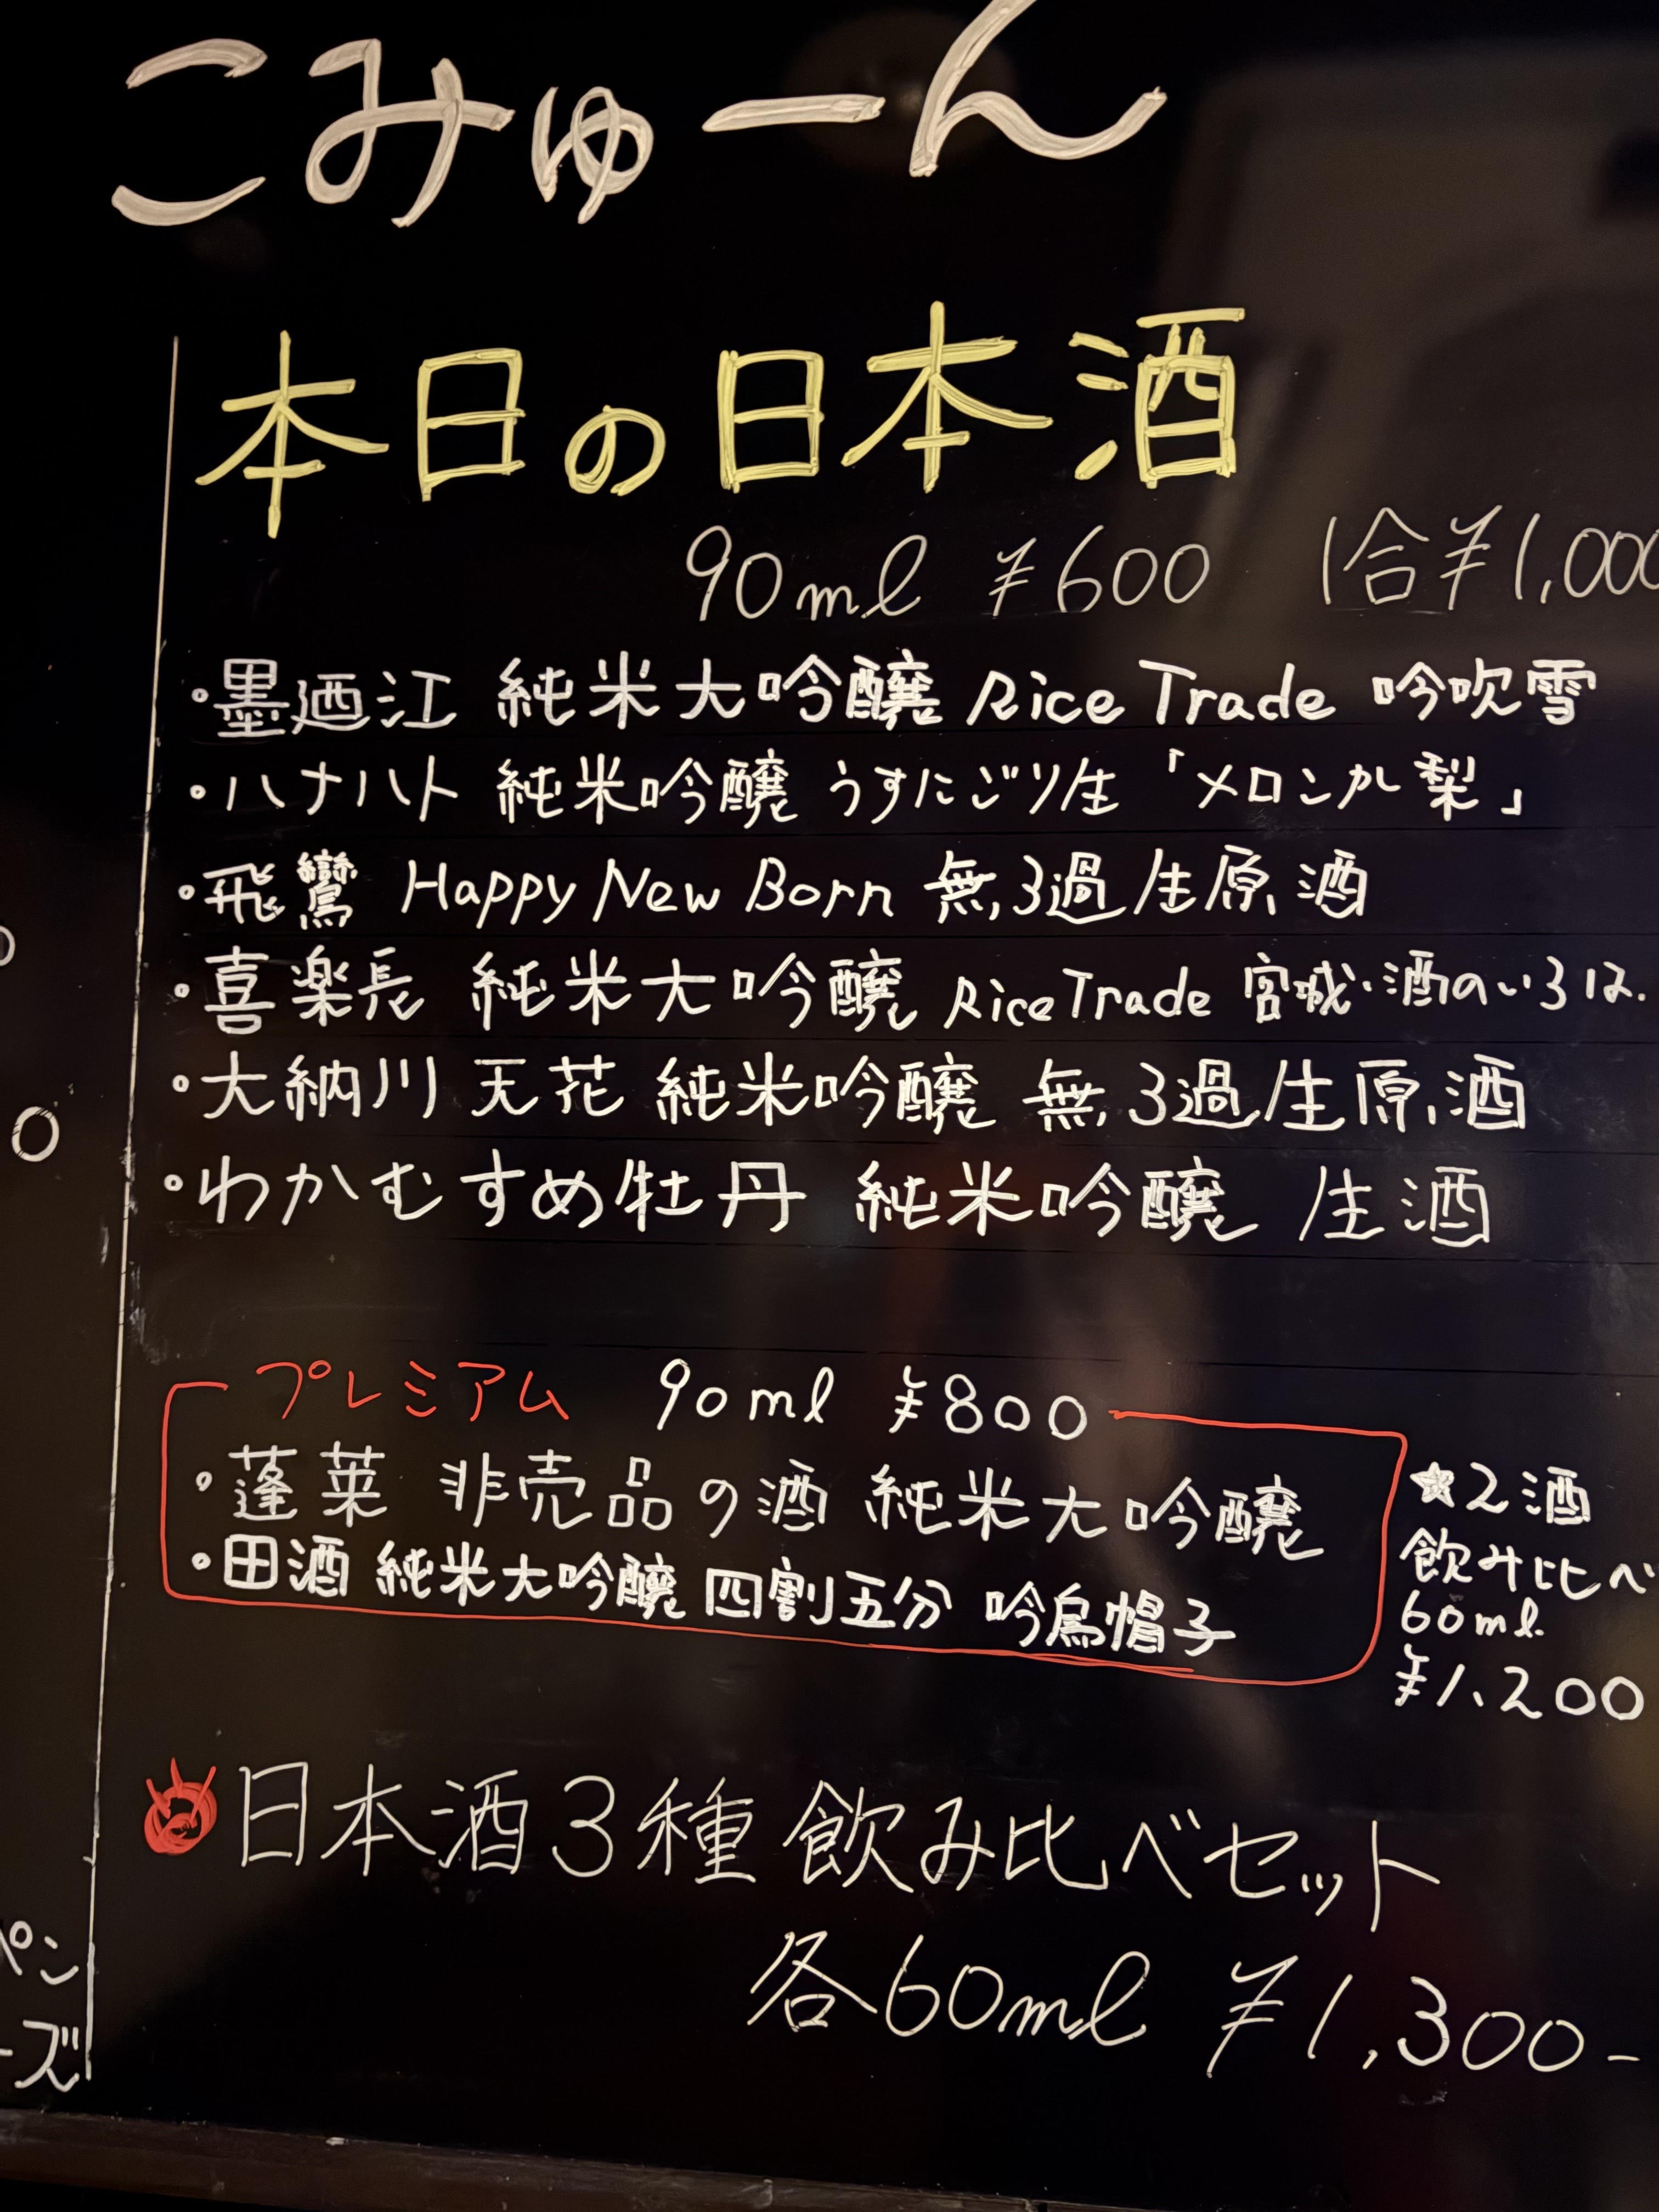 こみゅーん
本日の日本酒
90ml ¥600 1合¥1,000
・墨廼江 純米大吟醸 Rice Trade 吟吹雪
・ハナハト 純米吟醸 うすにごり生「メロンカル梨」
・飛鸞 Happy New Born 無ろ過生原酒
・喜楽長 純米大吟醸 Rice Trade 宮城・酒のいろは
・大納川 天花 純米吟醸 無ろ過生原酒
・わかむすめ牡丹 純米吟醸 生酒
プレミアム 90ml ¥800
・蓬莱 非売品の酒 純米大吟醸
・田酒 純米大吟醸 四割五分 吟烏帽子
☆2酒
飲み比べ
60ml
¥1,200
日本酒3種飲み比べセット
各60ml ¥1,300-
ペン
ーズ